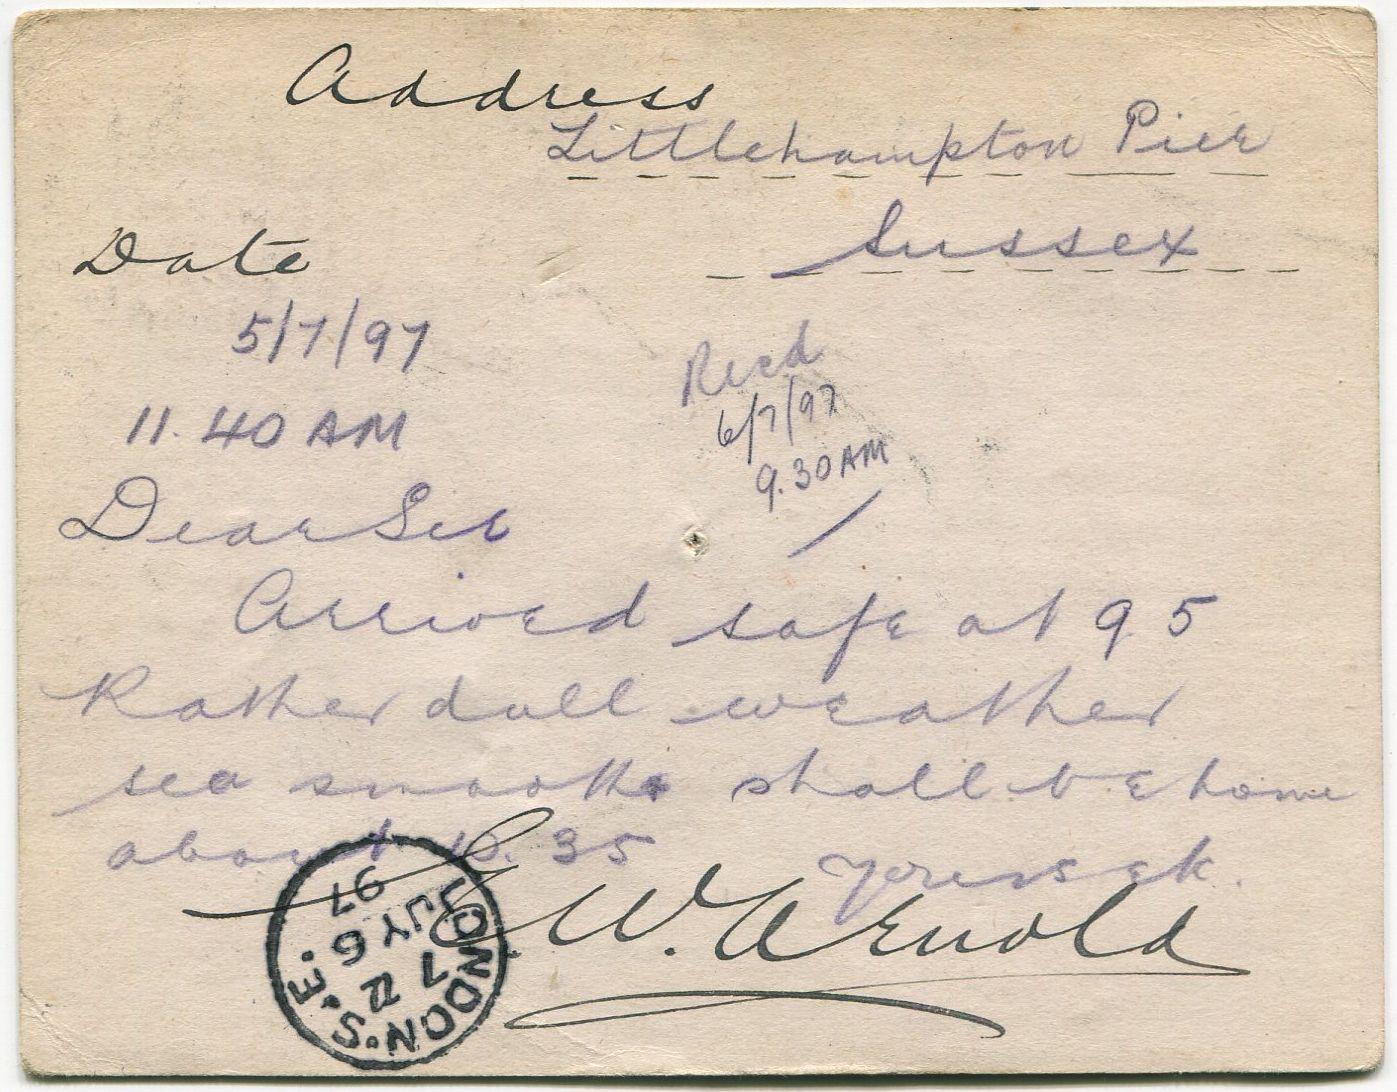 Address
Littlehampton Pier
Sussex
Date
5/7/97
11.40 AM
Recd
6/7/97
9.30 AM
Dear Sir
Arrived safe at 9.5
Rather dull weather
sea smooth shall be home
about 35
W. Arnold
LONDON.S.E.
7
JY 6
97